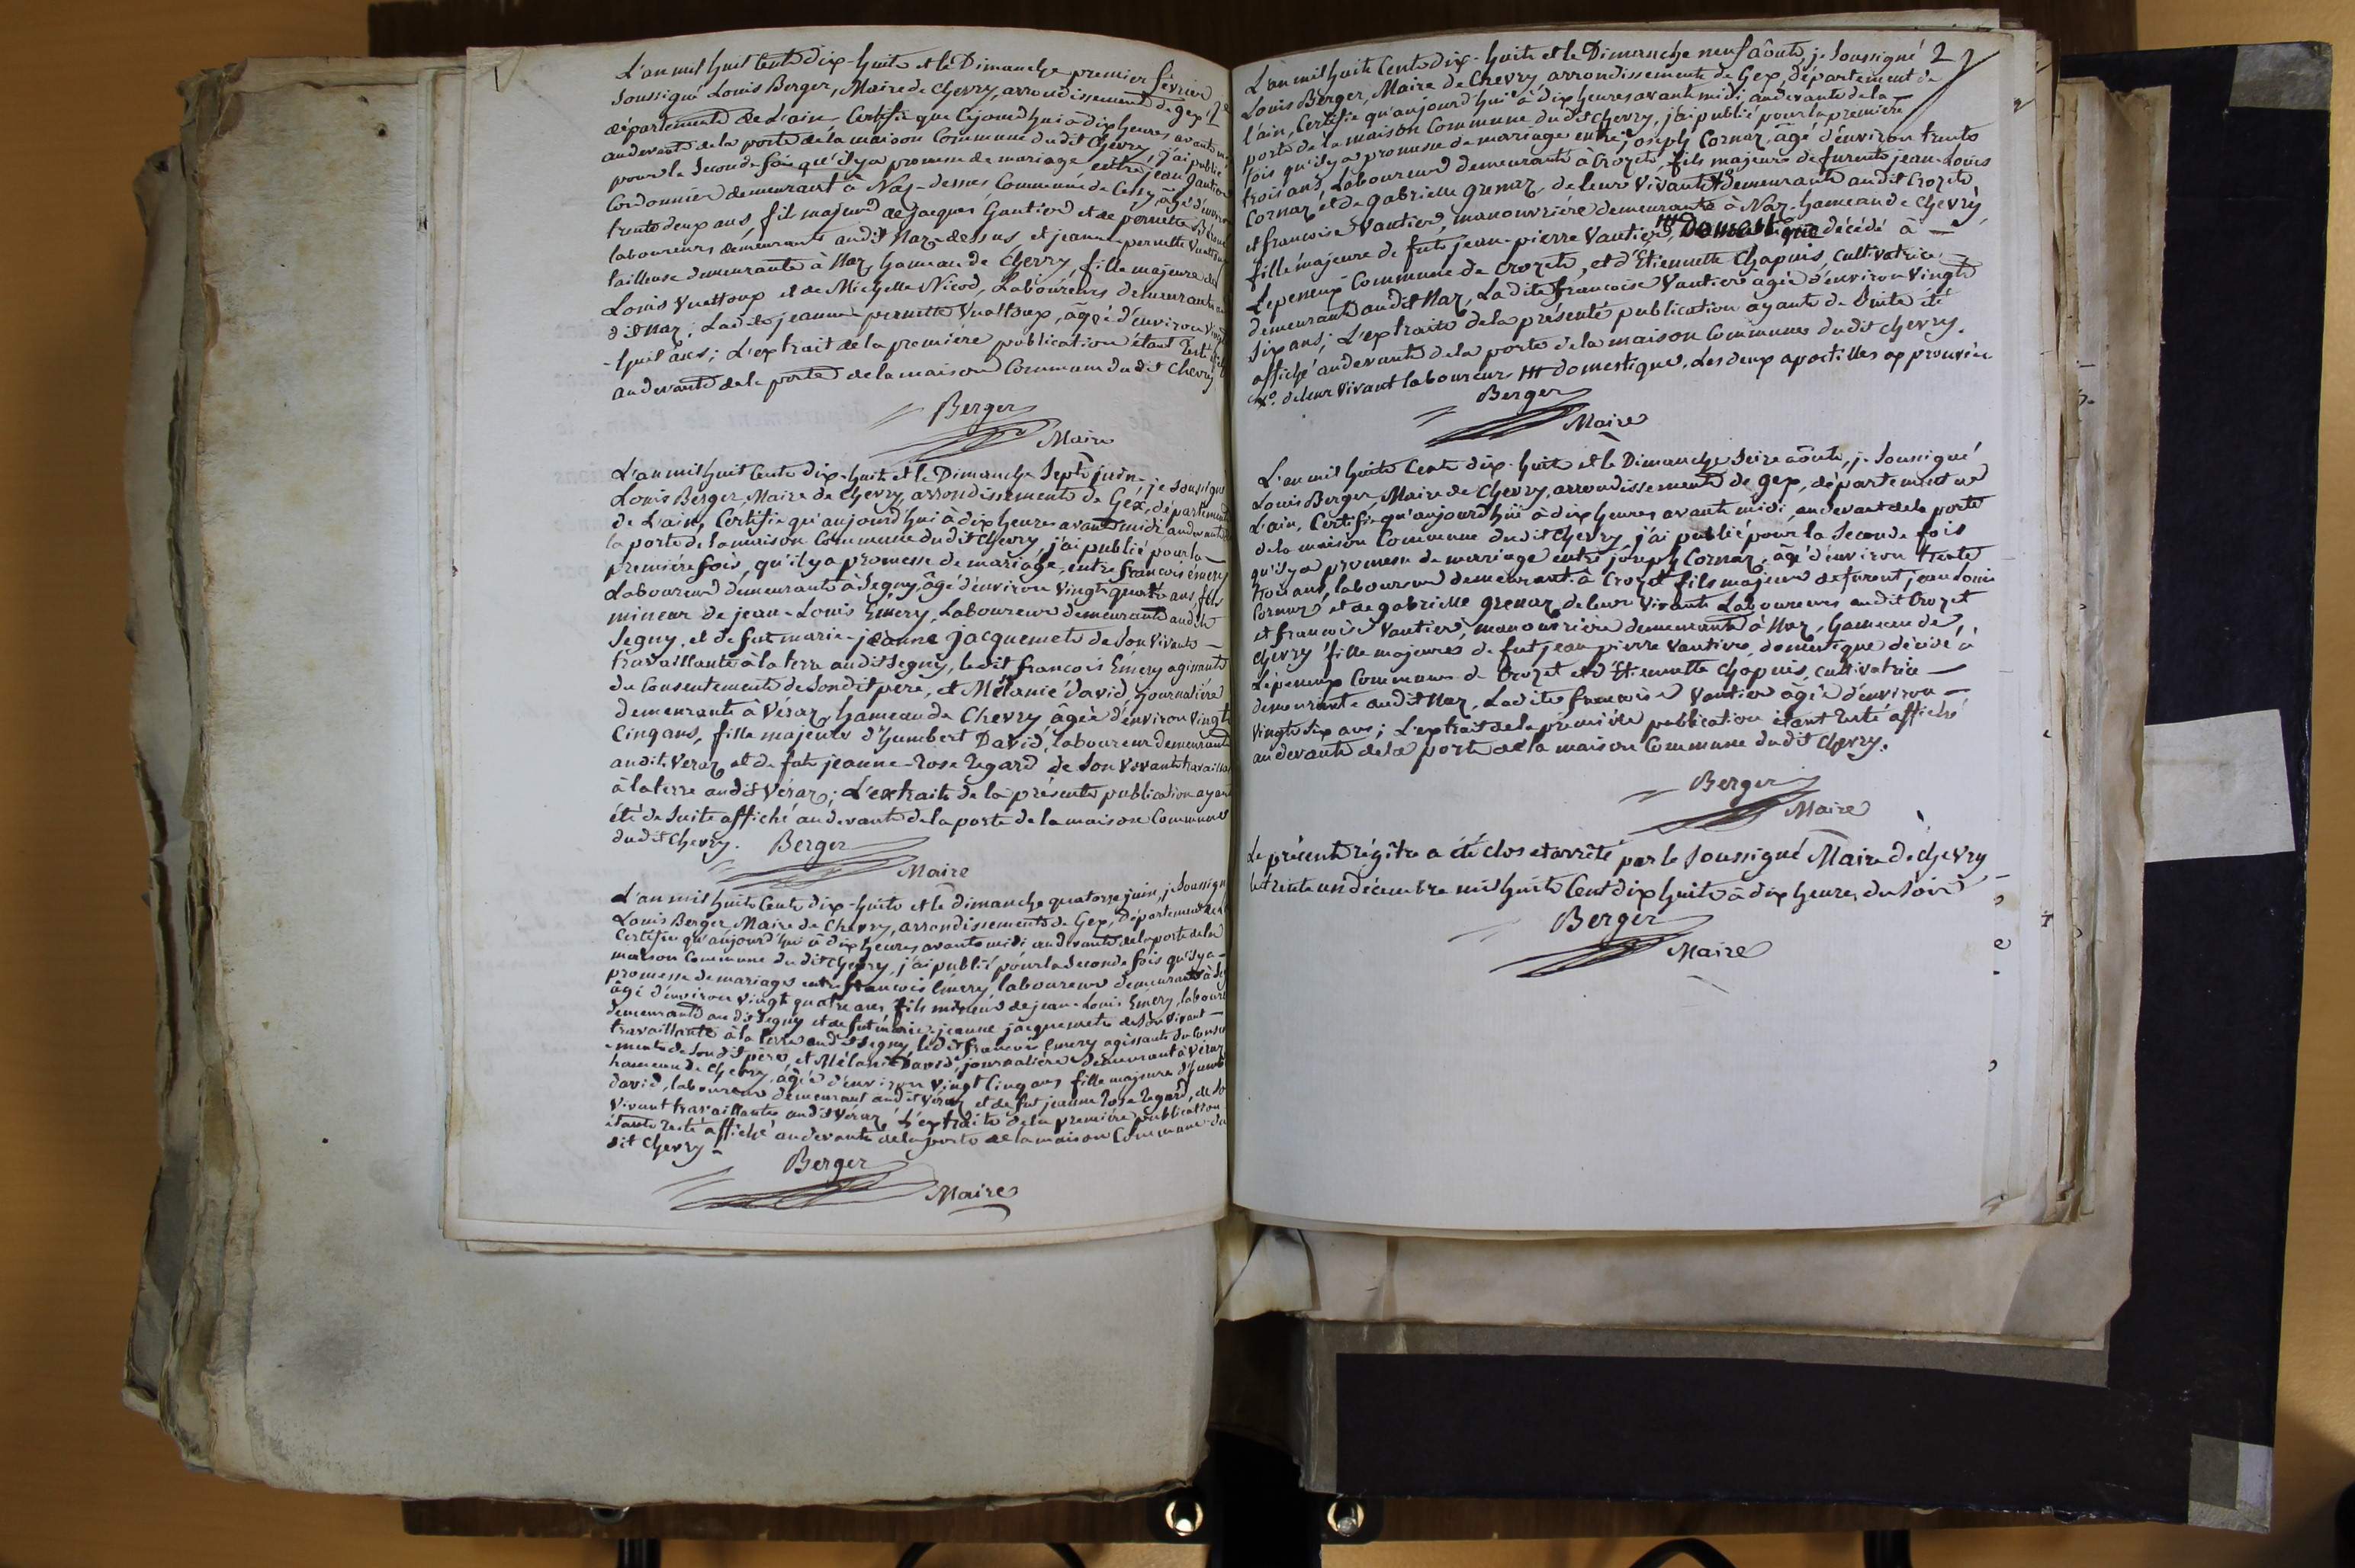 L'an mil huit Cents dix-huit et le Dimanche premier février
soussigné Louis Berger, Maire de Chevry, arrondissement de gex
département de L'ain Certifie que Cejourd'hui à dix heures avant
audevant de la porte de la maison Commune dudit Chevry, j'ai publié
pour la seconde fois qu'il y a promesse de mariage entre jean gautier
Cordonnier demeurant à Naz-dessus Commune de Cessy, âgé d'environ
trente deux ans, fils majeur de jacques Gautier et de pernette
laboureurs demeurants audit Naz-dessus, et jeanne-pernette Vuattoux
tailleuse demeurante à Naz, hameau de Chevry, fille majeure de
Louis Vuattoux et de Michelle Nicod, Laboureurs demeurants au
dit Naz; Ladite jeanne-pernette Vuattoux, âgée d'environ vingt
-huit ans; L'extrait de la première publication étant resté affiché
audevant de la porte de la maison Commune dudit Chevry
Berger
Maire
L'an mil huit Cents dix-huit et le Dimanche Sept juin, je soussigné
Louis Berger Maire de Chevry, arrondissement de Gex, département
de L'ain, Certifie qu'aujourd'hui à dix heures avant midi, audevant
la porte de la maison Commune dudit Chevry, j'ai publié pour la
première fois, qu'il y a promesse de mariage, entre francois émery
Laboureur demeurant à Segny, âgé d'environ vingt quatre ans, fils
mineur de jean-Louis Emery, Laboureur demeurant audit
Segny, et de fut marie-jeanne jacquemet de Son vivant
travaillante à la terre audit Segny, ledit francois Emery agissant
du Consentement de Sondit père, et Mélanie david, journalière
demeurante à Véraz, hameau de Chevry âgée d'environ vingt
Cinq ans, fille majeure d'humbert David, laboureur demeurant
audit Véraz et de fut jeanne-rose regard de Son vivant travaillante
à la terre audit Véraz; L'extrait de la présente publication ayant
été de Suite affiché audevant de la porte de la maison Commune
dudit Chevry. Berger
Maire
L'an mil huit Cents dix-huit et le dimanche quatorze juin, je soussigné
Louis Berger Maire de Chevry, arrondissement de Gex, département de
Certifie qu'aujourd'hui à dix heures avant midi audevant de la porte de la
maison Commune dudit Chevry, j'ai publié pour la seconde fois qu'il y a
promesse de mariage entre francois Emery laboureur demeurant à
âgé d'environ vingt quatre ans, fils mineur de jean-Louis Emery,
demeurant audit Segny et de fut marie-jeanne jacquemet de Son vivant
travaillante à la terre audit Segny, ledit francois Emery agissant du Conse
-ment de Sondit père, et Mélanie David, journalière demeurant à Véraz
hameau de Chevry, âgée d'environ vingt Cinq ans fille majeure d'humb
david, laboureur demeurant audit Véraz et de fut jeanne rose regard, de So
vivant travaillante audit Véraz, L'extrait de la première publication
étant resté affiché audevant de la porte de la maison Commune du
dit Chevry
Berger
Maire
L'an mil huit Cents dix-huit et le Dimanche neuf août, je soussigné
Louis Berger, Maire de Chevry arrondissement de Gex, département de
l'ain, Certifie qu'aujourd'hui à dix heures avant midi, audevant de la
porte de la maison Commune dudit Chevry, j'ai publié pour la première
fois qu'il y a promesse de mariage entre joseph Cornaz, âgé d'environ trente
trois ans, Laboureur demeurant à Crozet, fils majeur de furent jean-Louis
Cornaz et de gabrielle grenaz, de leur vivant demeurant audit Crozet
et francoise Vautier, manouvrière demeurante à Naz, hameau de Chevry,
fille majeure de fut jean-pierre Vautier, décédé à
Lepeneux Commune de Crozet, et d'Etiennette Chapuis, Cultivatrice
demeurante audit Naz, Ladite francoise Vautier âgée d'environ vingt
Six ans; L'extrait de la présente publication ayant de Suite été
affiché audevant de la porte de la maison Commune dudit Chevry.
de leur vivant laboureurs domestique. Les deux apostilles approuvées
Berger
Maire
L'an mil huit Cents dix-huit et le Dimanche Seize août, je soussigné
Louis Berger Maire de Chevry, arrondissement de gex, département de
L'ain, Certifie qu'aujourd'hui à dix heures avant midi, audevant de la porte
de la maison Commune dudit Chevry, j'ai publié pour la seconde fois
qu'il y a promesse de mariage entre joseph Cornaz, âgé d'environ trente
trois ans, laboureur demeurant à Crozet fils majeur de furent jean Louis
Cornaz et de gabrielle grenaz de leur vivant Laboureurs audit Crozet
et francoise Vautier, manouvrière demeurante à Naz, hameau de
Chevry fille majeure de fut jean pierre Vautier, domestique décédé à
Lepeneux Commune de Crozet et d'Etiennette Chapuis, cultivatrice
demeurante audit Naz, Ladite francoise Vautier âgée d'environ
vingt Six ans; L'extrait de la première publication étant resté affiché
audevant de la porte de la maison Commune dudit Chevry.
Berger
Maire
Le présent régître a été clos et arrêté par le soussigné Maire de Chevry
le trente un décembre mil huit Cent dix huit à dix heures du Soir
Berger
Maire